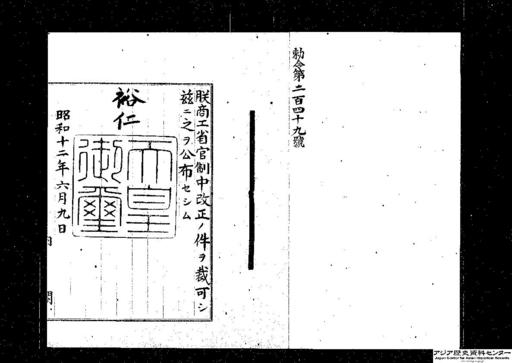 勅令第二百四十九號
朕商工省官制中改正ノ件ヲ裁可シ
茲ニ之ヲ公布セシム
裕仁
天皇
御璽
昭和十二年六月九日
内閣
アジア歴史資料センター
Japan Center for Asian Historical Records